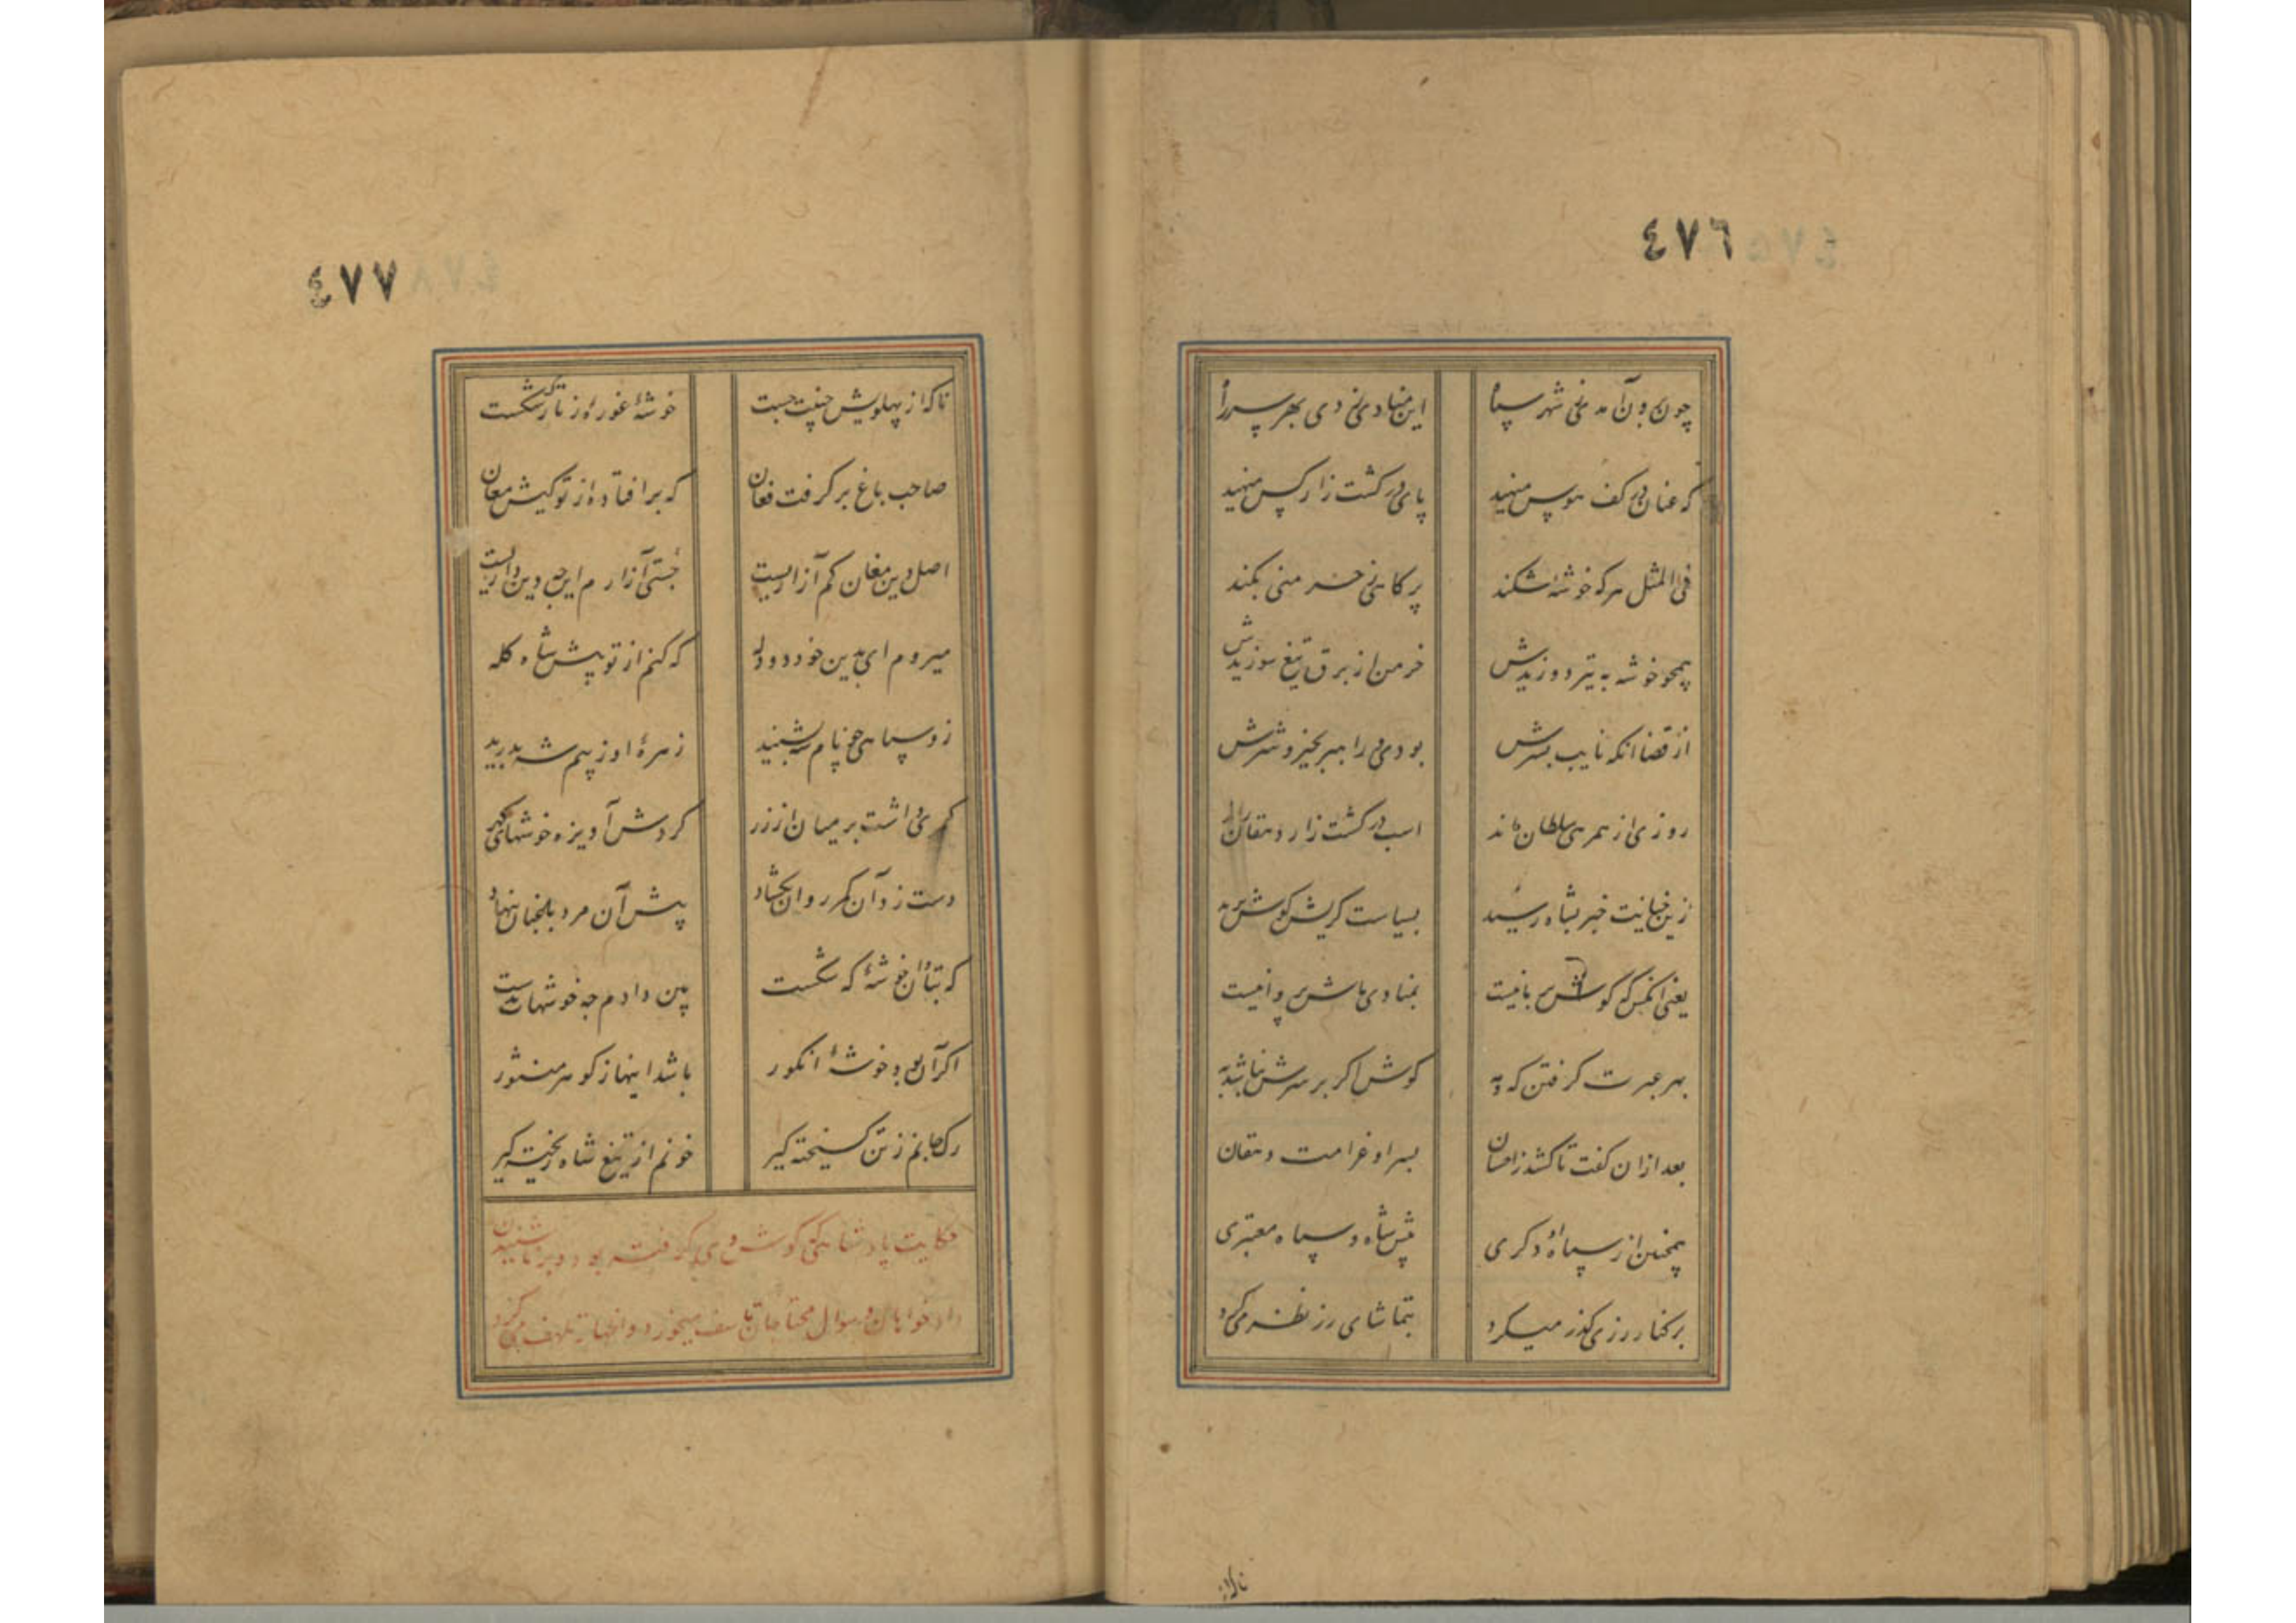 ٤٧٦
چون برون آمدی ز شهر سپاه
این منادی زدی بهر سر راه
که عنان در کف هوس منهید
پای در کشت زار کس منهید
فی المثل هر که خوشه شکند
پر کاهی ز خرمنی بکند
همچو خوشه به تیر دوزیدش
خرمن از برق تیغ سوزیدش
از قضا آنکه نایب بسرش
بودی و راهبر بخیر و شرش
روزی از همرهی سلطان ماند
اسب در کشت زار دهقان راند
زین خیانت خبر بشاه رسید
بسیاست کریش گوش برید
یعنی آنکس که گوش بر ما نیست
بمنادی ماش پروا نیست
بهر عبرت گرفتن که و مه
گوش اگر بر سرش نباشد به
بعد ازان گفت تا کشد ز امسان
بسر او غرامت دهقان
همچنین از سپاه او دکری
پیش شاه و سپاه معتبری
بر کنار رزی گذر میکرد
بتماشای رز نظر میکرد
ناکه از پهلویش جنیبت جست
خوشهٔ غوره از تارک شکست
صاحب باغ بر گرفت فغان
که بر افتاده از تو کیش مغان
اصل دین مغان کم آزاریست
جستی آزارم این چه دین داریست
میروم ای بدین خود دو دله
که کنم از تو پیش شاه کله
زو سپاهی چو نام شه بشنید
زهرهٔ او ز بیم شه بدرید
کمری داشت بر میان از زر
گردش آویزه خوشهای گهر
دست زد آن کمر روان بگشاد
پیش آن مرد باغبان بنهاد
که بتاوان خوشهٔ که شکست
بین دادم چه خوشهات بدست
اگر آن بود خوشهٔ انگور
باشد اینها ز گوهر منثور
رگ جانم ز تن گسیخته گیر
خونم از تیغ شاه ریخته گیر
حکایت پادشاهی که گوش وی گرفته بود و بر ناشنیدن
داد خواهان و سوال محتاجان تاسف میخورد و اظهار تلهف می کرد
٤٧٧